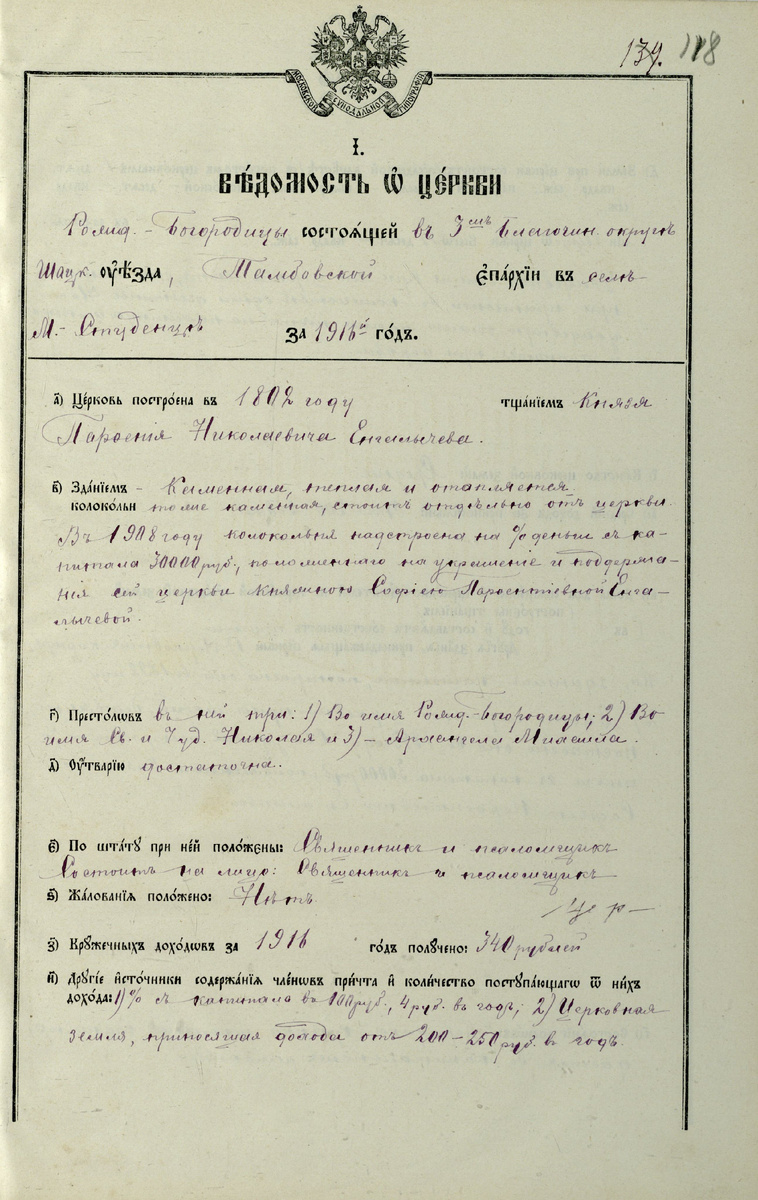 139. 118
МОСКОВСКОЙ СѴНОДАЛЬНОЙ ТИПОГРАФІИ
І.
ВѢ́ДОМОСТЬ Ѡ҆ ЦЕ́РКВИ
Рожд.-Богородицы состоѧ́щей въ 3мъ Благочин. округѣ
Шацк. ᲂу҆ѣ́зда, Тамбовской є҆па́рхїи въ селѣ
М.-Студенцѣ за 1916й го́дъ.
а҃) Це́рковь постро́ена въ 1802 году тща́нїемъ Князя
Парѳенія Николаевича Енгалычева.
в҃) Зда́нїемъ - Каменная, теплая и отапляется
колоко́льни тоже каменная, стоитъ отдѣльно отъ церкви.
Въ 1908 году колокольня надстроена на % деньги съ ка-
питала 30000 руб., положеннаго на украшеніе и поддержа-
нія сей церкви княжною Софіею Парѳентіевной Енга-
лычевой.
г҃) Престо́лѡвъ въ ней три: 1) Во имя Рожд.-Богородицы; 2) Во
имя Св. и Чуд. Николая и 3) - Архангела Михаила.
д҃) Оу҆́тварїю достаточна.
є҃) По шта́ту при не́й поло́жены: Священникъ и псаломщикъ
Состоитъ на лицо: Священникъ и псаломщикъ
ѕ҃) Жа́лованїѧ поло́жено: Нѣтъ.
з҃) Крꙋ́жечныхъ дохо́дѡвъ за 1916 го́дъ полꙋчено: 340 рублей
и҃) Дрꙋгі́е и҆сто́чники содержа́нїѧ чле́нѡвъ при́чта и҆ коли́чество постꙋпа́ющагѡ ѿ ни́хъ
дохо́да: 1) % съ капитала въ 100 руб., 4 руб. въ годъ; 2) Церковная
земля, приносящая дохода отъ 200-250 руб. въ годъ.